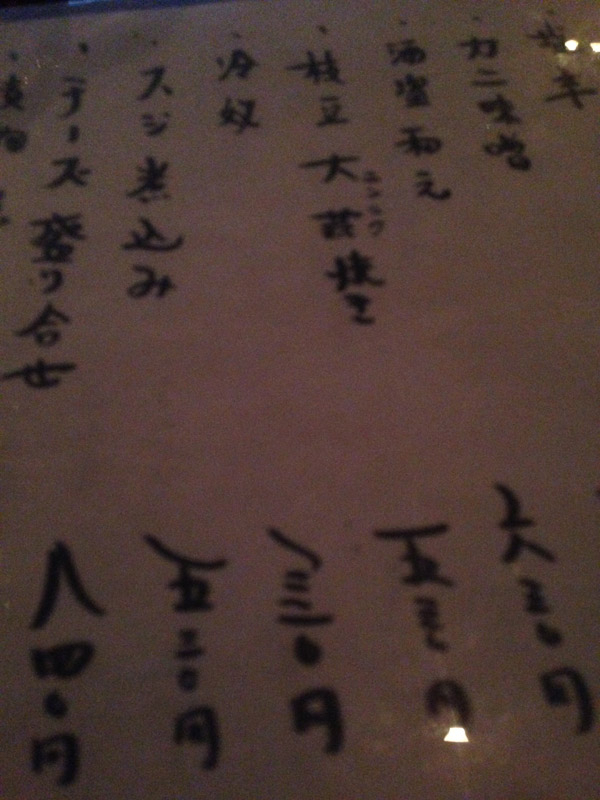 ・カニ味噌
・酒盗和え
・枝豆大蒜焼き
ニンニク
・冷奴
・スジ煮込み
・チーズ盛り合せ
六三〇円
五三〇円
三三〇円
五三〇円
八四〇円